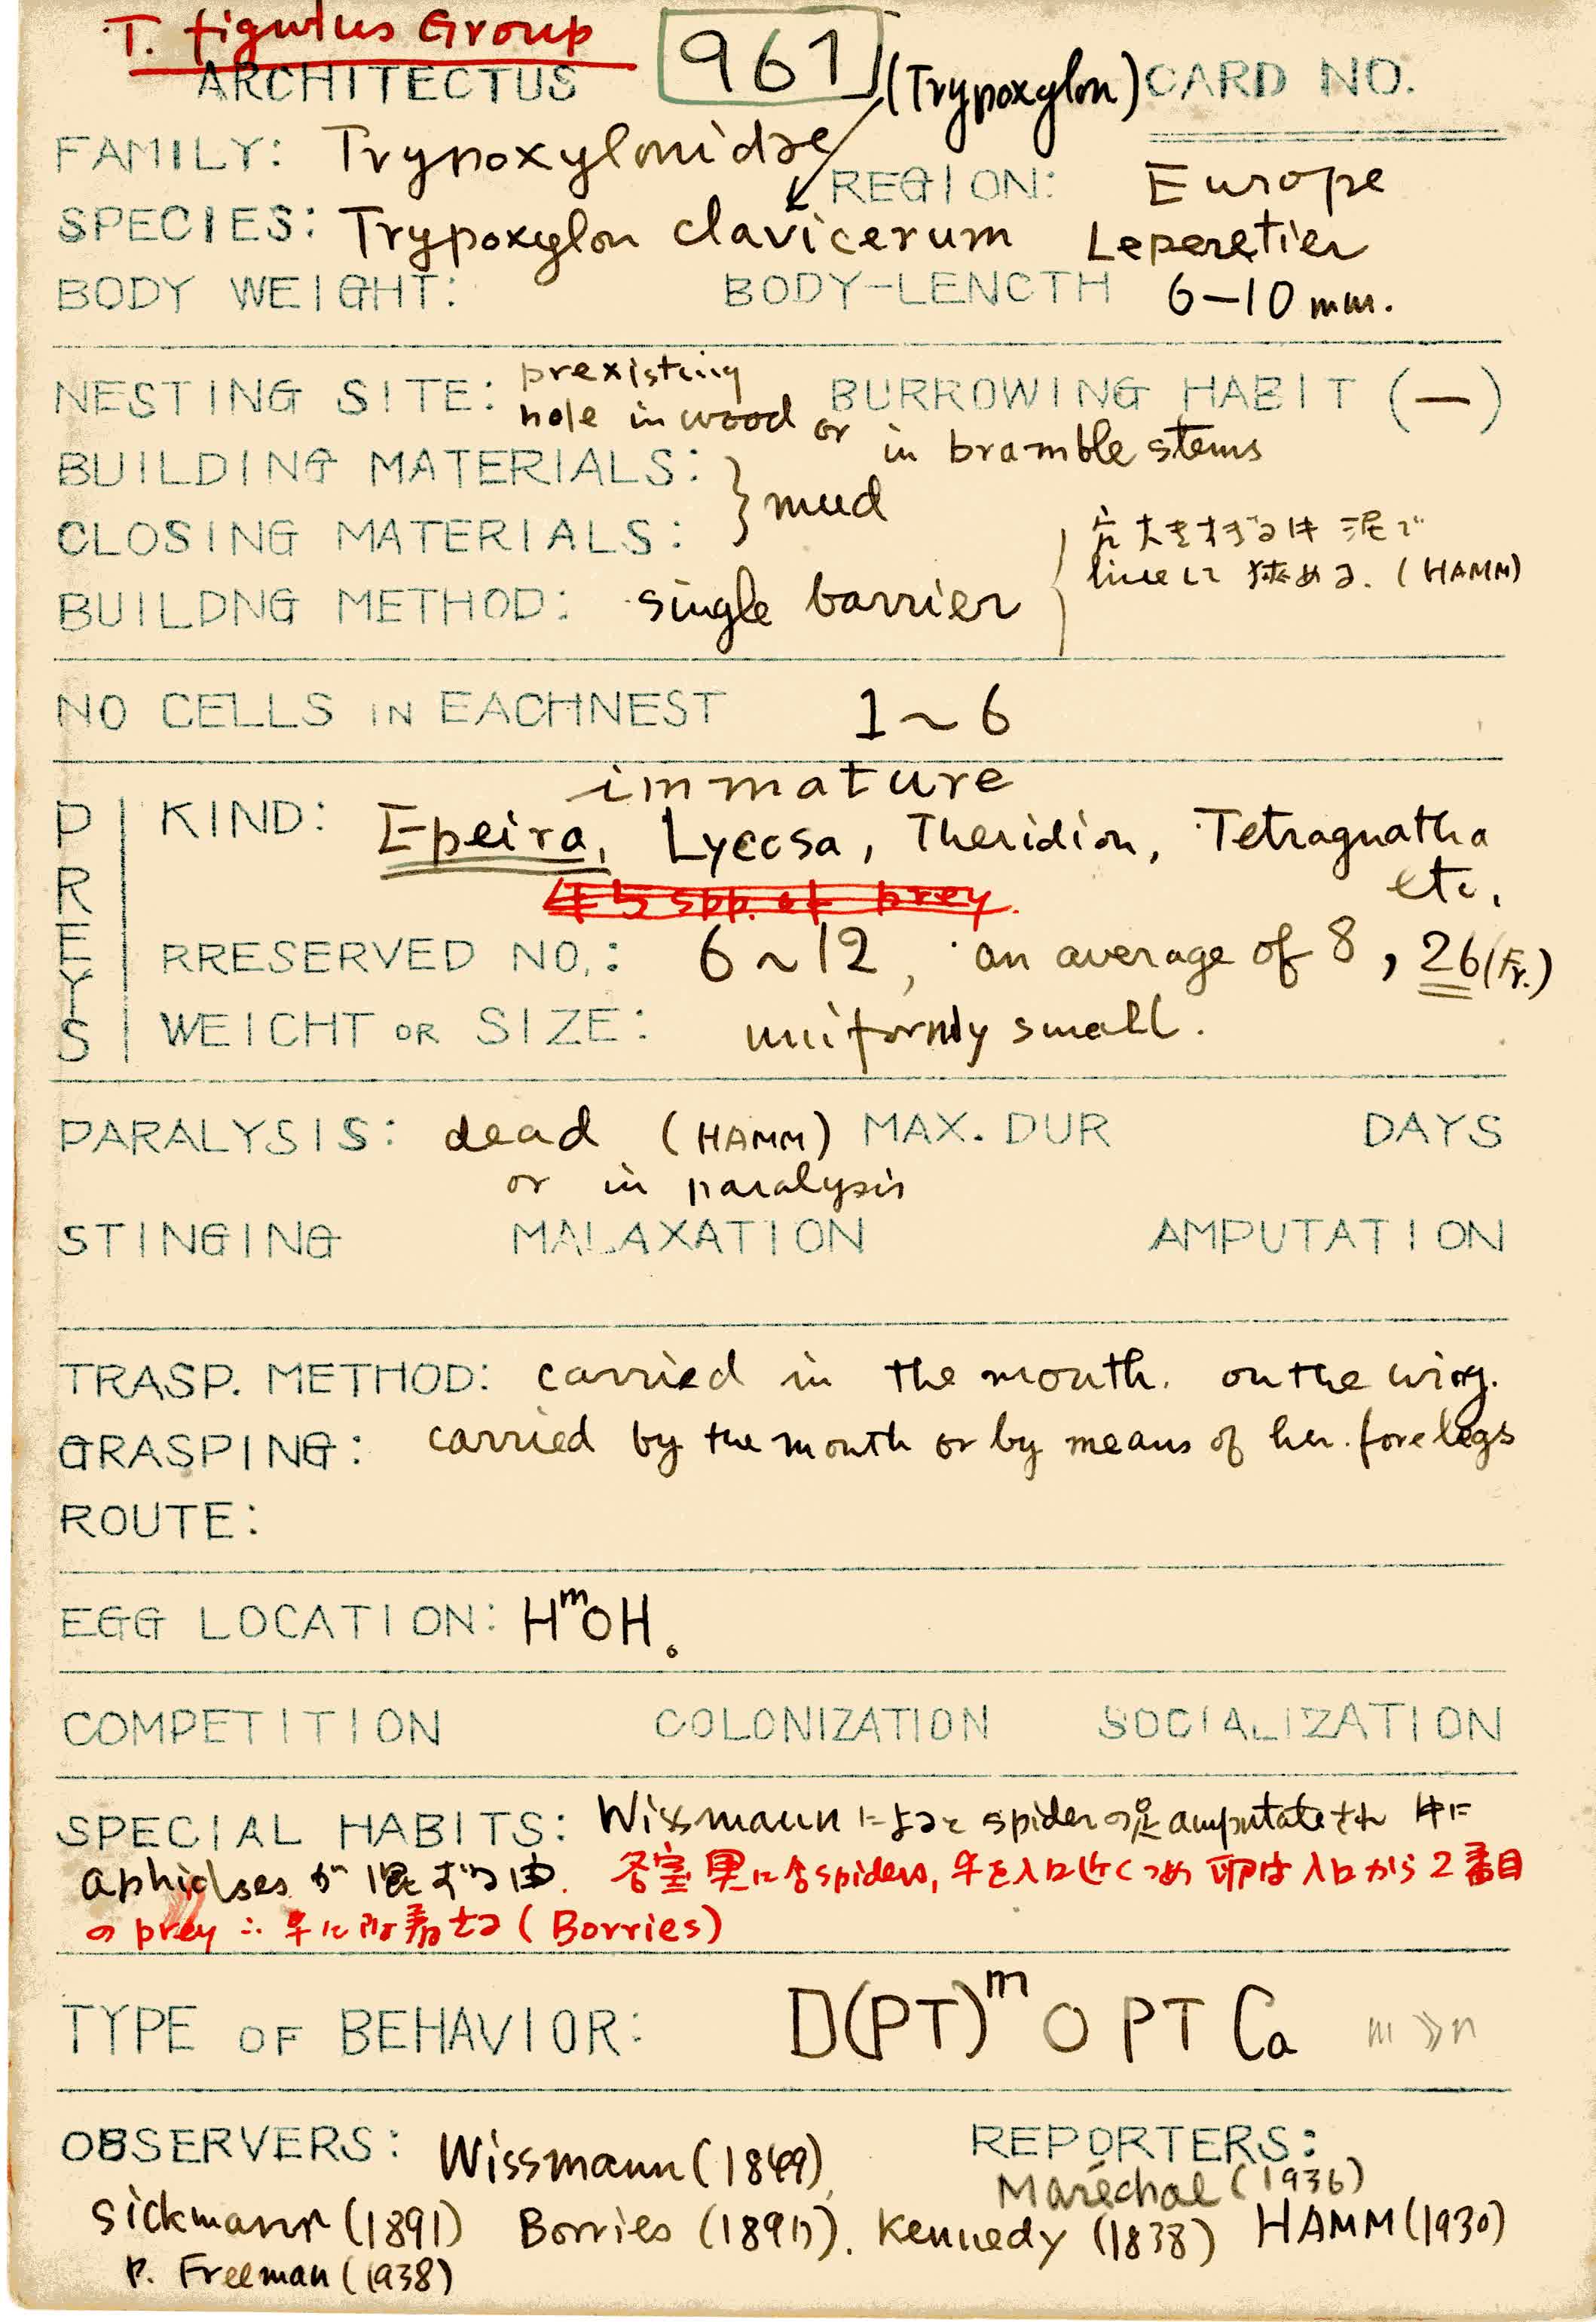 T. figulus Group
ARCHITECTUS 961 (Trypoxylon) CARD NO.
FAMILY: Trypoxylonidae
REGION: Europe
SPECIES: Trypoxylon clavicerum Leperetier
BODY WEIGHT: BODY-LENGTH 6-10 mm.
NESTING SITE: prexisting hole in wood or in bramble stems
BURROWING HABIT (-)
BUILDING MATERIALS:
CLOSING MATERIALS: } mud
BUILDNG METHOD: single barrier
穴大きすぎるは泥で
lineして狭める. (HAMM)
NO CELLS IN EACHNEST 1~6
PREYS
immature
KIND: Epeira, Lycosa, Theridion, Tetragnatha
etc.
4~5 spp. of prey.
RRESERVED NO.: 6~12, an average of 8, 26 (Fr.)
WEIGHT OR SIZE: uniformly small.
PARALYSIS: dead (HAMM) MAX. DUR DAYS
or in paralysis
STINGING MALAXATION AMPUTATION
TRASP. METHOD: carried in the mouth. on the wing.
GRASPING: carried by the mouth or by means of her. forelegs
ROUTE:
EGG LOCATION: HᵐOH.
COMPETITION COLONIZATION SOCIALIZATION
SPECIAL HABITS: Wissmannによると spiderの足 amputateされ 中に
aphidses が混ずる由. 各室 spiders, 入口近くつめ 卵は入口から2番目
の prey ∴ 早に (Borries)
TYPE OF BEHAVIOR: D(PT)ᵐ O PT Ca m≫n
OBSERVERS: Wissmann (1849),
REPORTERS:
Maréchal (1936)
Sickmann (1891) Borries (1897). Kennedy (1838) HAMM (1930)
P. Freeman (1938)